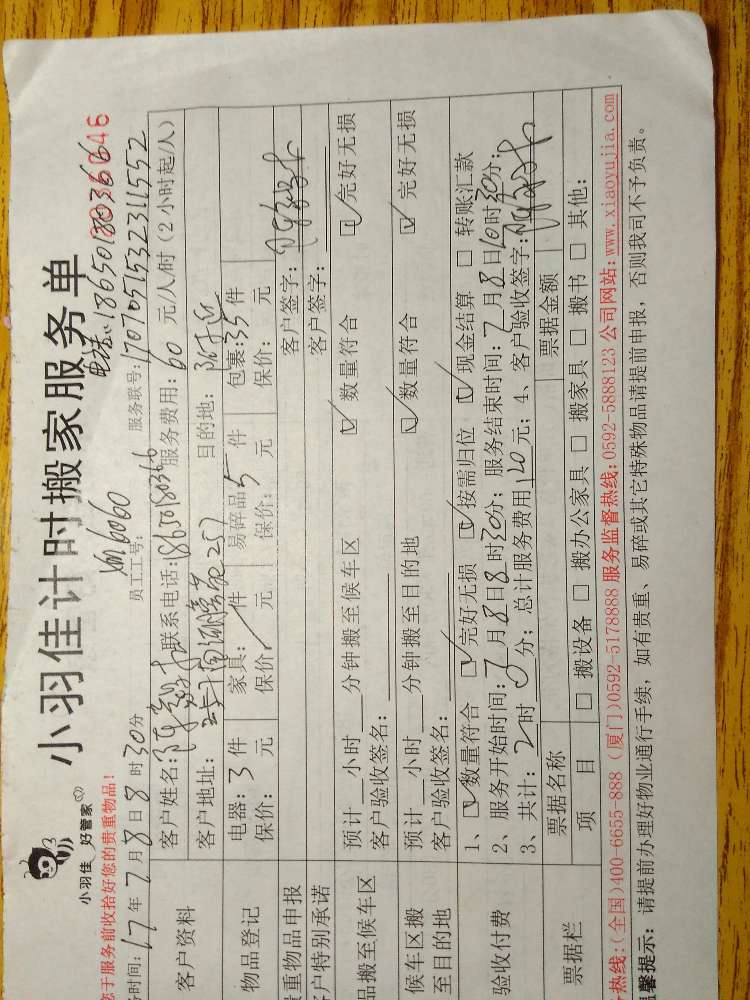 小羽佳 好管家
小羽佳计时搬家服务单
您于服务前收拾好您的贵重物品!
电话:18650180366
务时间:17年7月8日8时30分 员工工号:xm6060 服务联号:1707051532311552
客户资料 客户姓名: 联系电话:18650180366 服务费用:60元/人/时(2小时起/人)
客户地址: 目的地:附近
物品登记 电器:3件 家具:/件 易碎品5件 包裹:35件
保价: 元 保价 元 保价: 元 保价: 元
贵重物品申报 客户签字:
客户特别承诺 客户签字:
品搬至候车区 预计 小时 分钟搬至候车区 ☑数量符合 ☑完好无损
客户验收签名:
候车区搬至目的地 预计 小时 分钟搬至目的地 ☑数量符合 ☑完好无损
客户验收签名:
验收付费 1、☑数量符合 ☑完好无损 ☑按需归位 ☑现金结算 □转账汇款
2、服务开始时间:7月8日8时30分;服务结束时间:7月8日10时30分;
3、共计:2时0分;总计服务费用 元;4、客户验收签字:
票据栏 票据名称 票据金额
项目 □搬设备 □搬办公家具 □搬家具 □搬书 □其他:
热线:(全国)400-6655-888 (厦门)0592-5178888 服务监督热线:0592-5888123 公司网站:www.xiaoyujia.com
馨提示:请提前办理好物业通行手续,如有贵重、易碎或其它特殊物品请提前申报,否则我司不予负责。